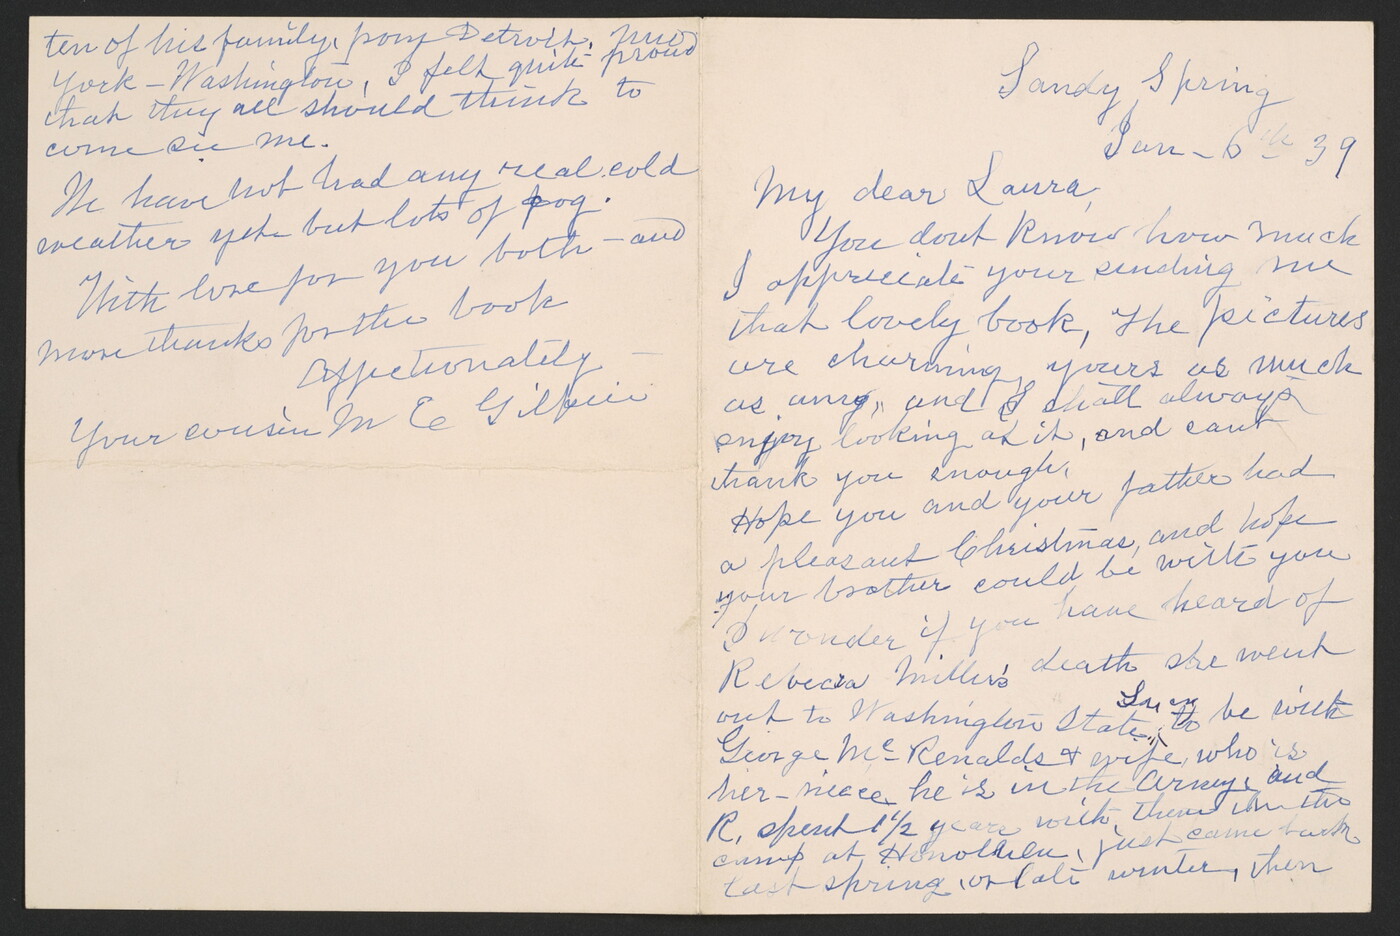 Sandy Spring
Jan - 6th 39
My dear Laura,
You dont know how much
I appreciate your sending me
that lovely book, The pictures
are charming, yours as much
as any, and I shall always
enjoy looking at it, and cant
thank you enough.
Hope you and your father had
a pleasant Christmas, and hope
your brother could be with you
I wonder if you have heard of
Rebecca Miller's death she went
out to Washington State, to be with
George Mc Renalds & wife, who is
her - niece he is in the Army, and
R, spent 1 1/2 years with them in the
camp at Honolulu, just came back
last spring, or late winter, then
ten of his family, from Detroit, New
York - Washington, I felt quite proud
that they all should think to
come see me.
We have not had any real cold
weather yet but lots of fog.
With love for you both - and
more thanks for the book
Affectionately -
Your cousin M E Gilpin